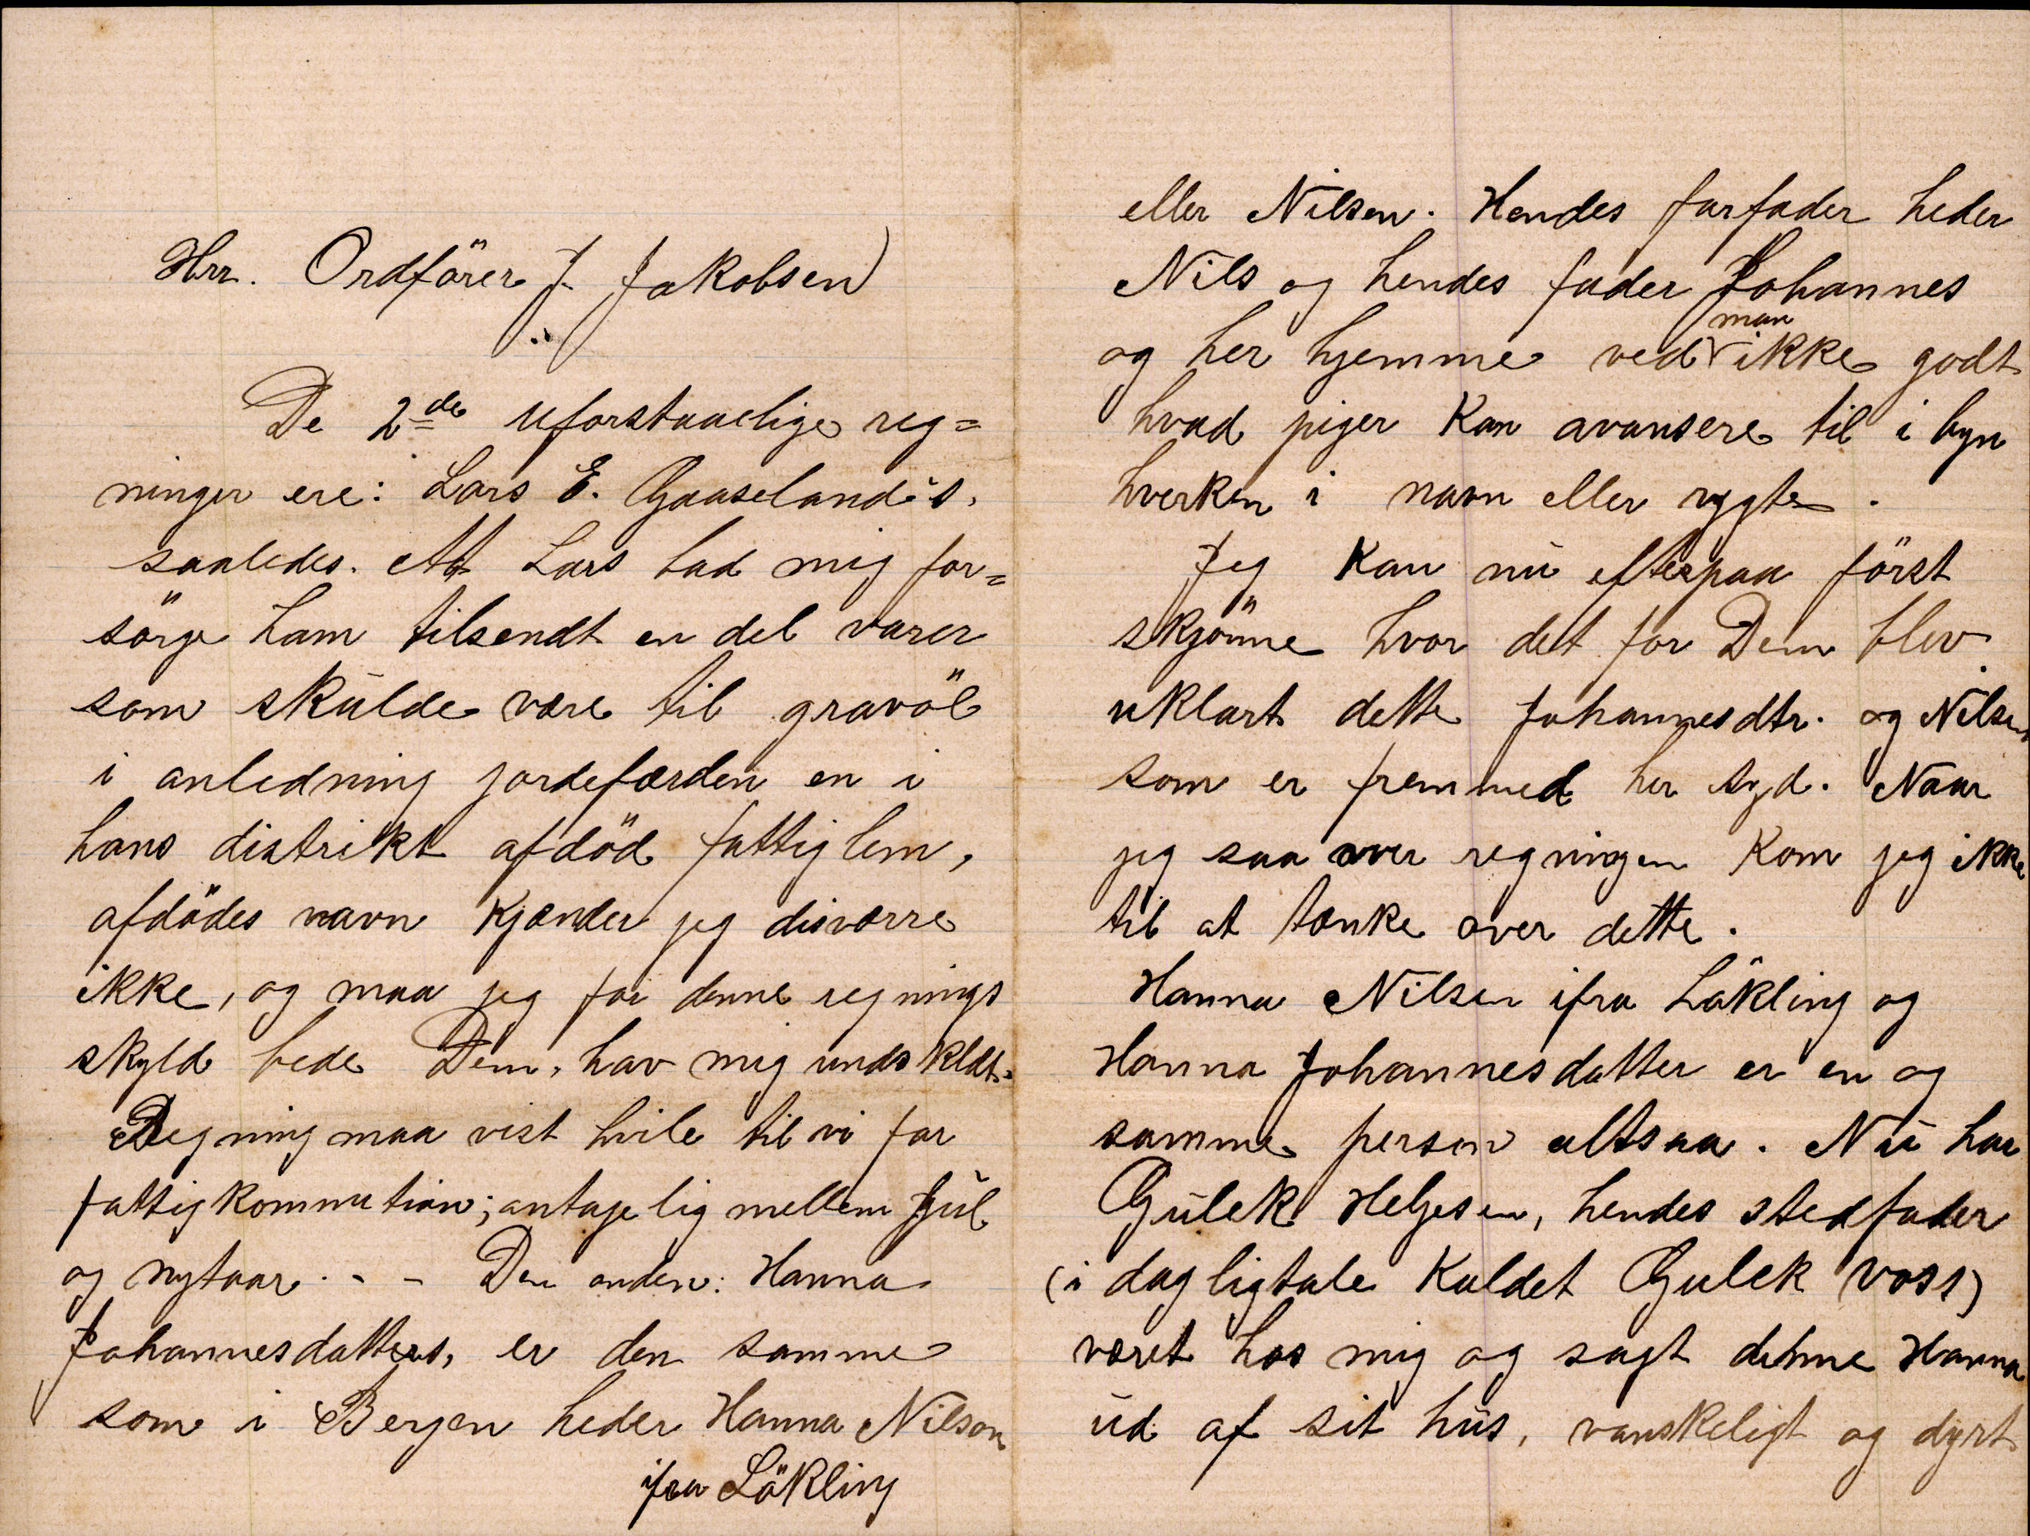 Hrr. Ordförer J. Jakobsen
De 2de uforstaaelige reg=
ninger ere: Lars E. Gaaseland's.
saaledes. At Lars bad mig for=
sörge ham tilsendt en del varer
som skulde være til gravöl
i anledning jordefærden en i
hans distrikt afdöd fattiglem,
afdödes navn kjænder jeg disværre
ikke, og maa jeg for denne regnings
skyld bede Dem, hav mig undskldt.
Regning maa vist hvile til vi får
fattigkommution; antagelig mellem Jul
og nytaar. - - Den anden: Hanna
Johannesdatters, er den samme
som i Bergen heder Hanna Nilsen
ifra Lökling
eller Nilsen. Hendes farfader heder
Nils og hendes fader Johannes
og her hjemme ved man ikke godt
hvad piger kan avansere til i byn
hverken i navn eller rygte.
Jeg kan nu efterpaa först
skjönne hvor det for Dem blev
uklart dette Johannesdtr. og Nilsen
som er fremmed her syd. Naar
jeg saa over regningen kom jeg ikke
til at tænke over dette.
Hanna Nilsen ifra Lökling og
Hanna Johannesdatter er en og
samme person altsaa. Nu har
Gulek Helgesen, hendes stedfader
(i dagligtale kaldet Gulek Voss)
været hos mig og sagt denne Hanna
ud af sit hus, vanskeligt og dyrt